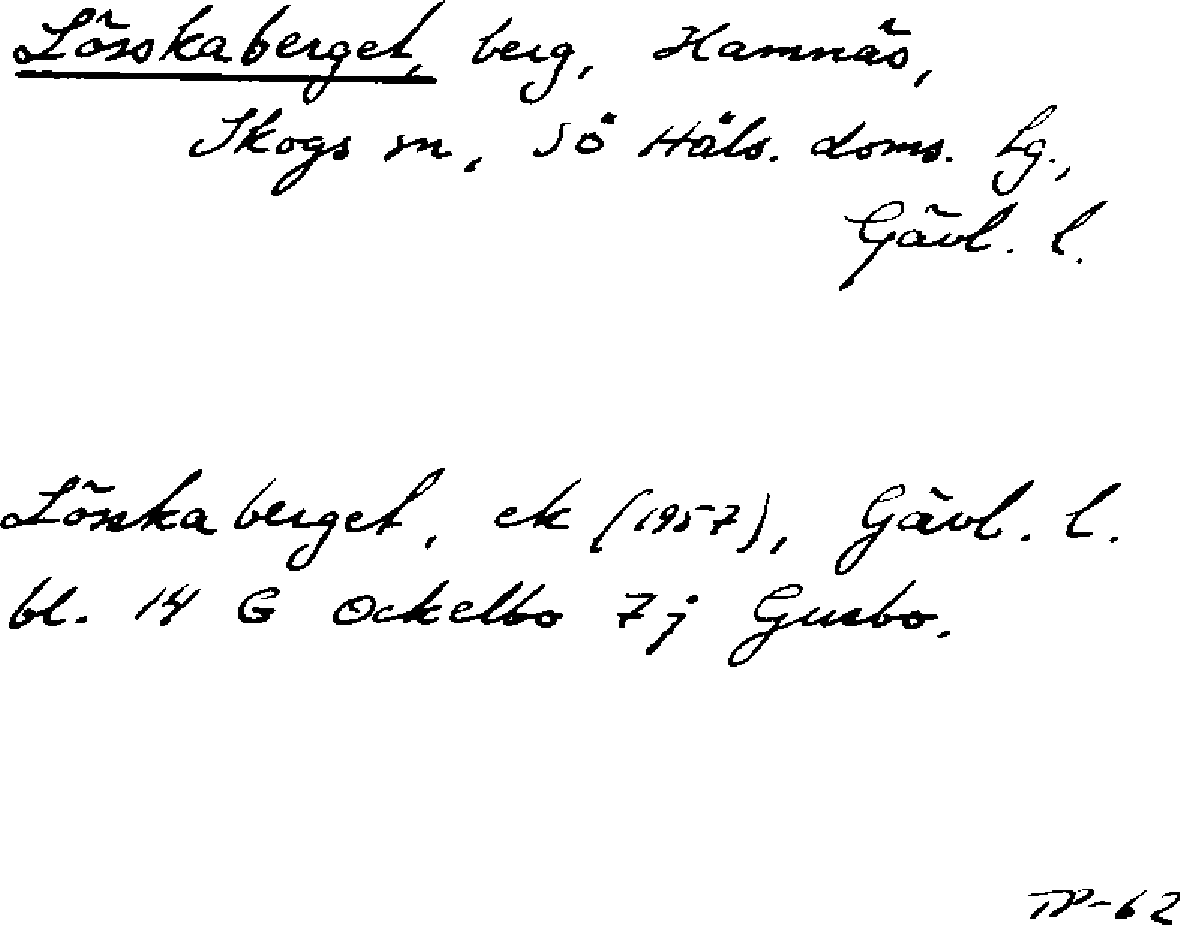 Lönskaberget, berg, Hamnäs,
Skogs sn, Sö Häls. doms. tg.,
Gävl. l.
Lönskaberget, ek (1957), Gävl. l.
bl. 14 G Ockelbo 7 j Gusbo.
TP-62